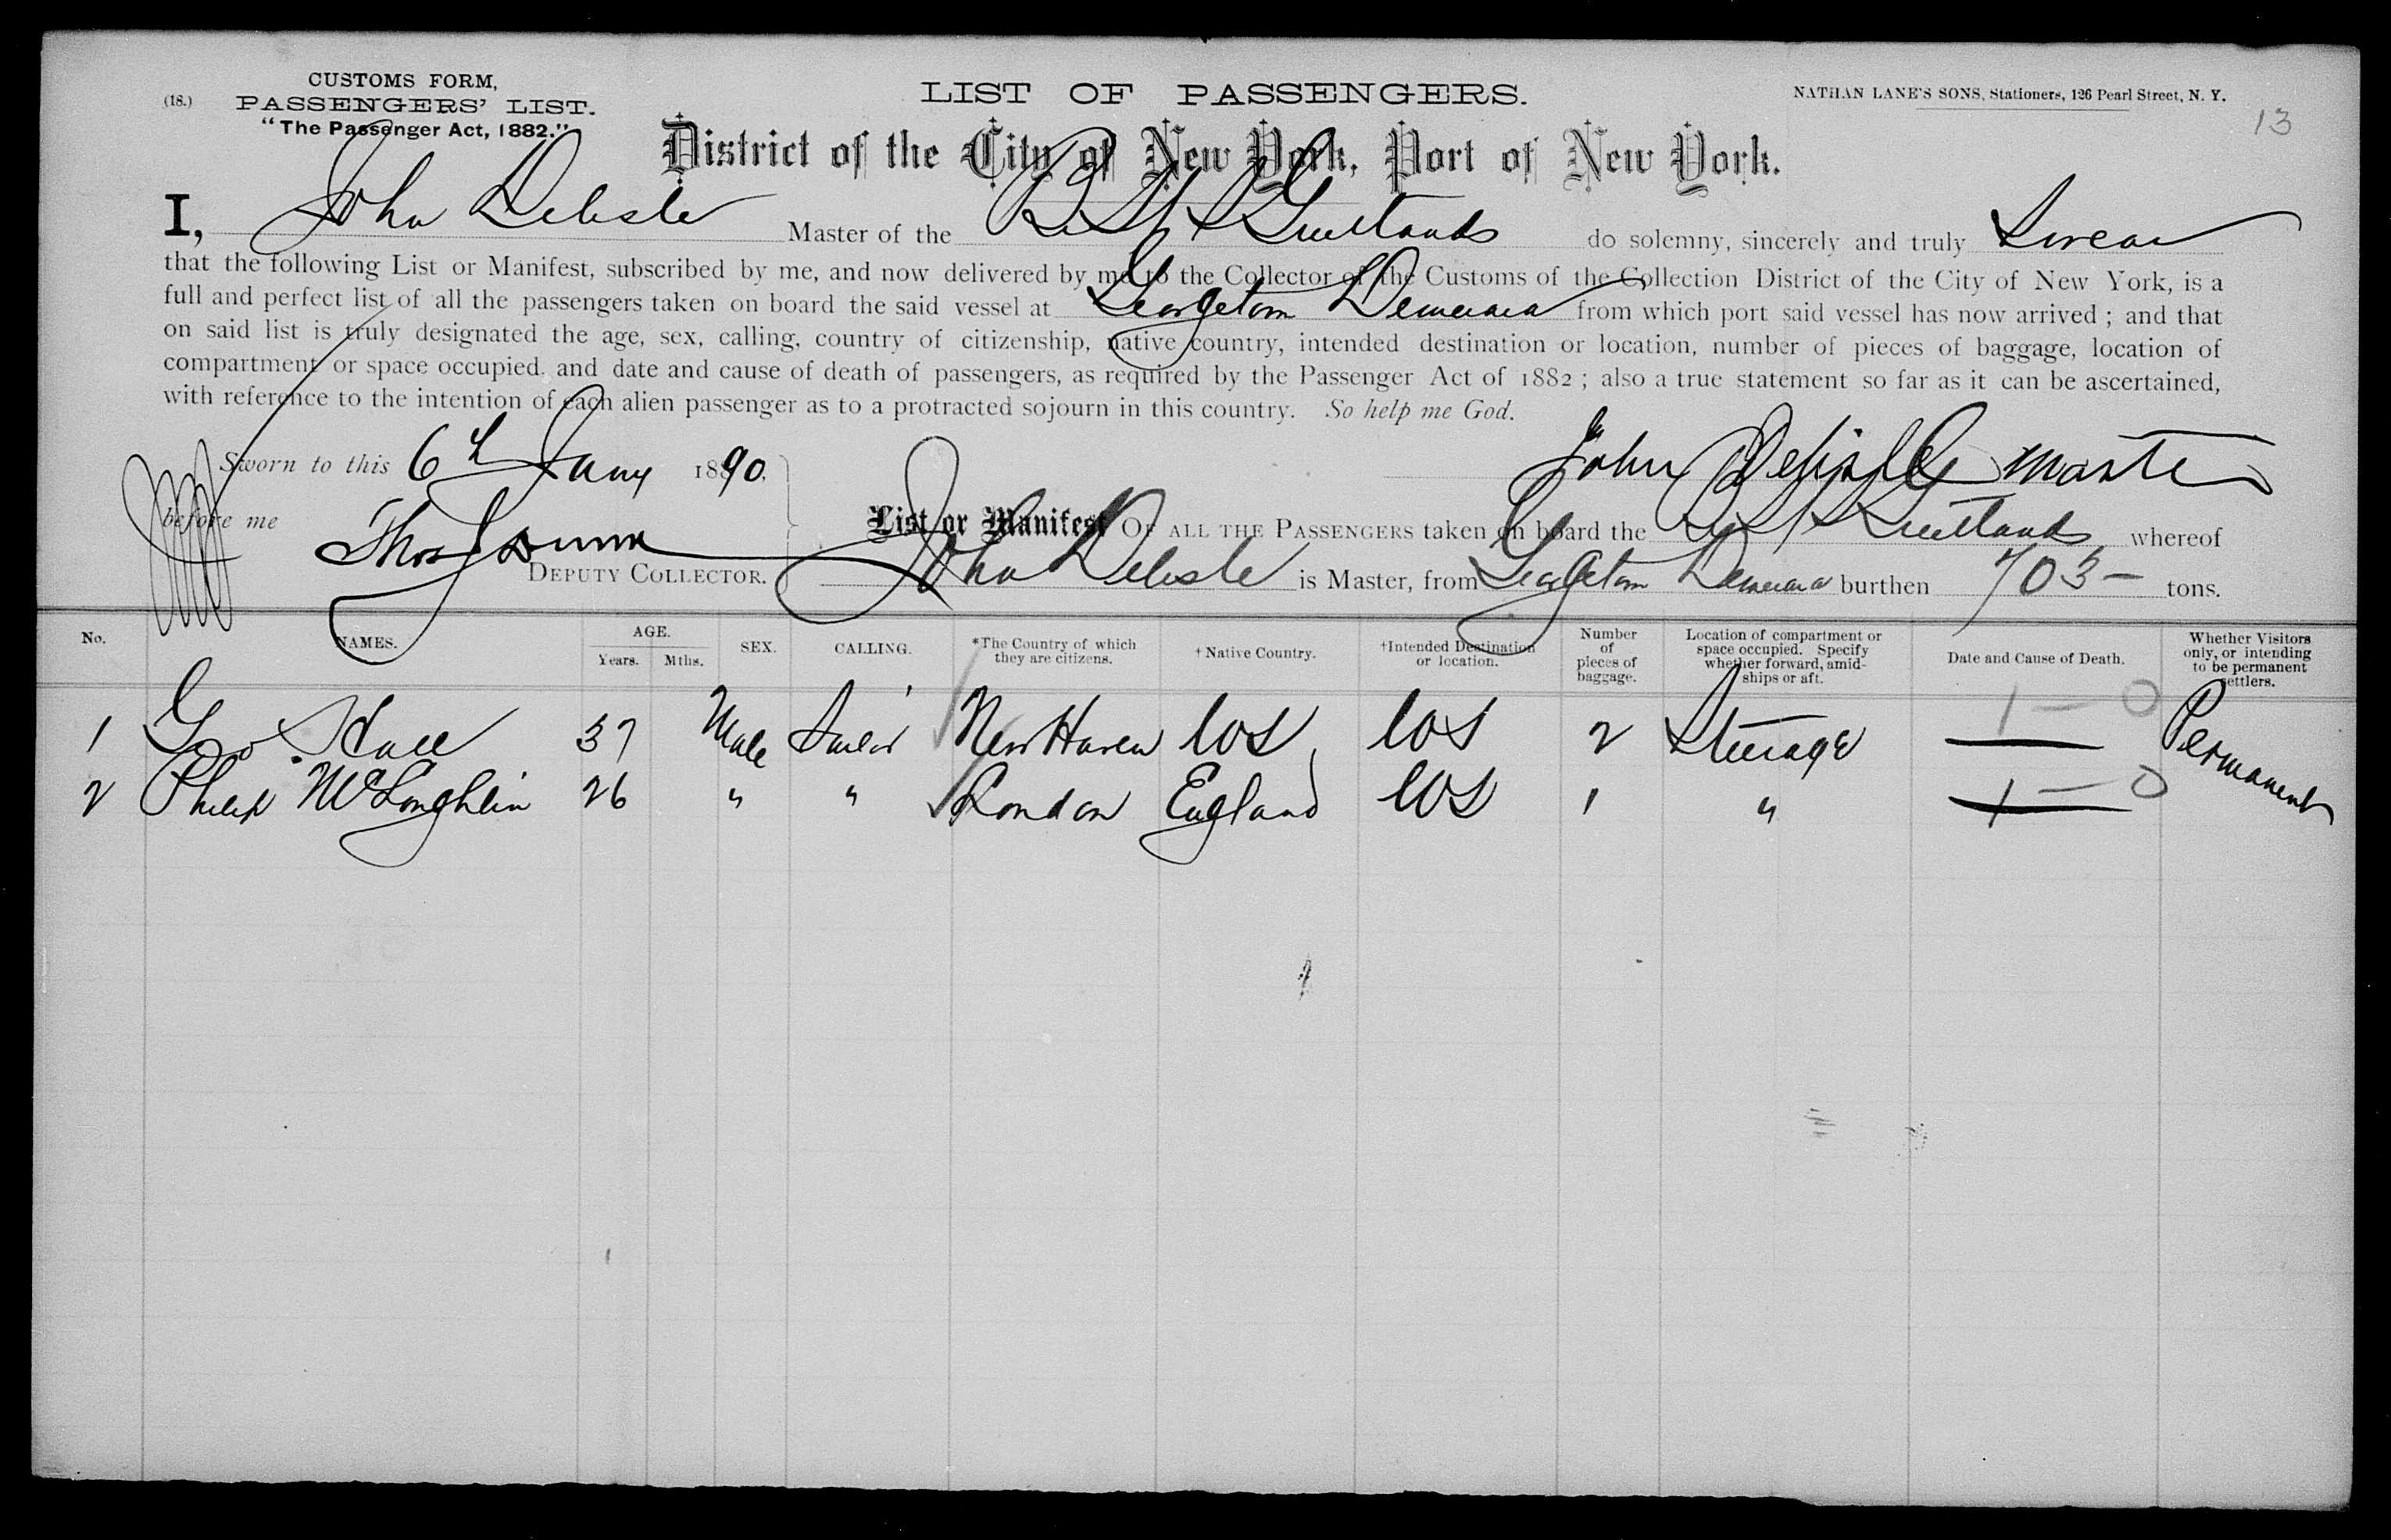 (18.) CUSTOMS FORM,
PASSENGERS' LIST.
"The Passenger Act, 1882."
LIST OF PASSENGERS.
NATHAN LANE'S SONS, Stationers, 126 Pearl Street, N. Y.
13
District of the City of New York, Port of New York.
I, John Delisle Master of the do solemny, sincerely and truly Swear
that the following List or Manifest, subscribed by me, and now delivered by me to the Collector of the Customs of the Collection District of the City of New York, is a
full and perfect list of all the passengers taken on board the said vessel at Georgetown Demerara from which port said vessel has now arrived ; and that
on said list is truly designated the age, sex, calling, country of citizenship, native country, intended destination or location, number of pieces of baggage, location of
compartment or space occupied, and date and cause of death of passengers, as required by the Passenger Act of 1882 ; also a true statement so far as it can be ascertained,
with reference to the intention of each alien passenger as to a protracted sojourn in this country. So help me God.
Sworn to this 6th Jany 1890.
John Delisle Master
before me Thos Dunn
DEPUTY COLLECTOR.
List or Manifest OF ALL THE PASSENGERS taken on board the whereof
John Delisle is Master, from Georgetown Demerara burthen 703 - tons.
No. NAMES. AGE. Years. Mths. SEX. CALLING. *The Country of which they are citizens. †Native Country. †Intended Destination or location. Number of pieces of baggage. Location of compartment or space occupied. Specify whether forward, amidships or aft. Date and Cause of Death. Whether Visitors only, or intending to be permanent settlers.
1 Geo. 37 Male New Haven US US 2 Steerage 1 - 0 Permanent
2 Philip McLoughlin 26 " " London England US 1 " 1 - 0